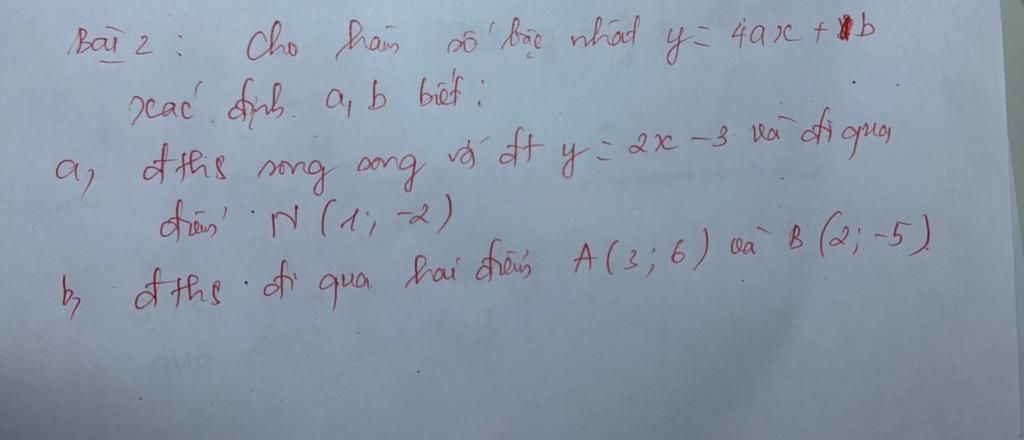 Bài 2 : Cho hàm số bậc nhất y = 4ax + b
xác định a, b biết :
a, đths song song với đt y = 2x - 3 và đi qua
điểm N (1; -2)
b, đths đi qua hai điểm A (3 ; 6) và B (2; -5).